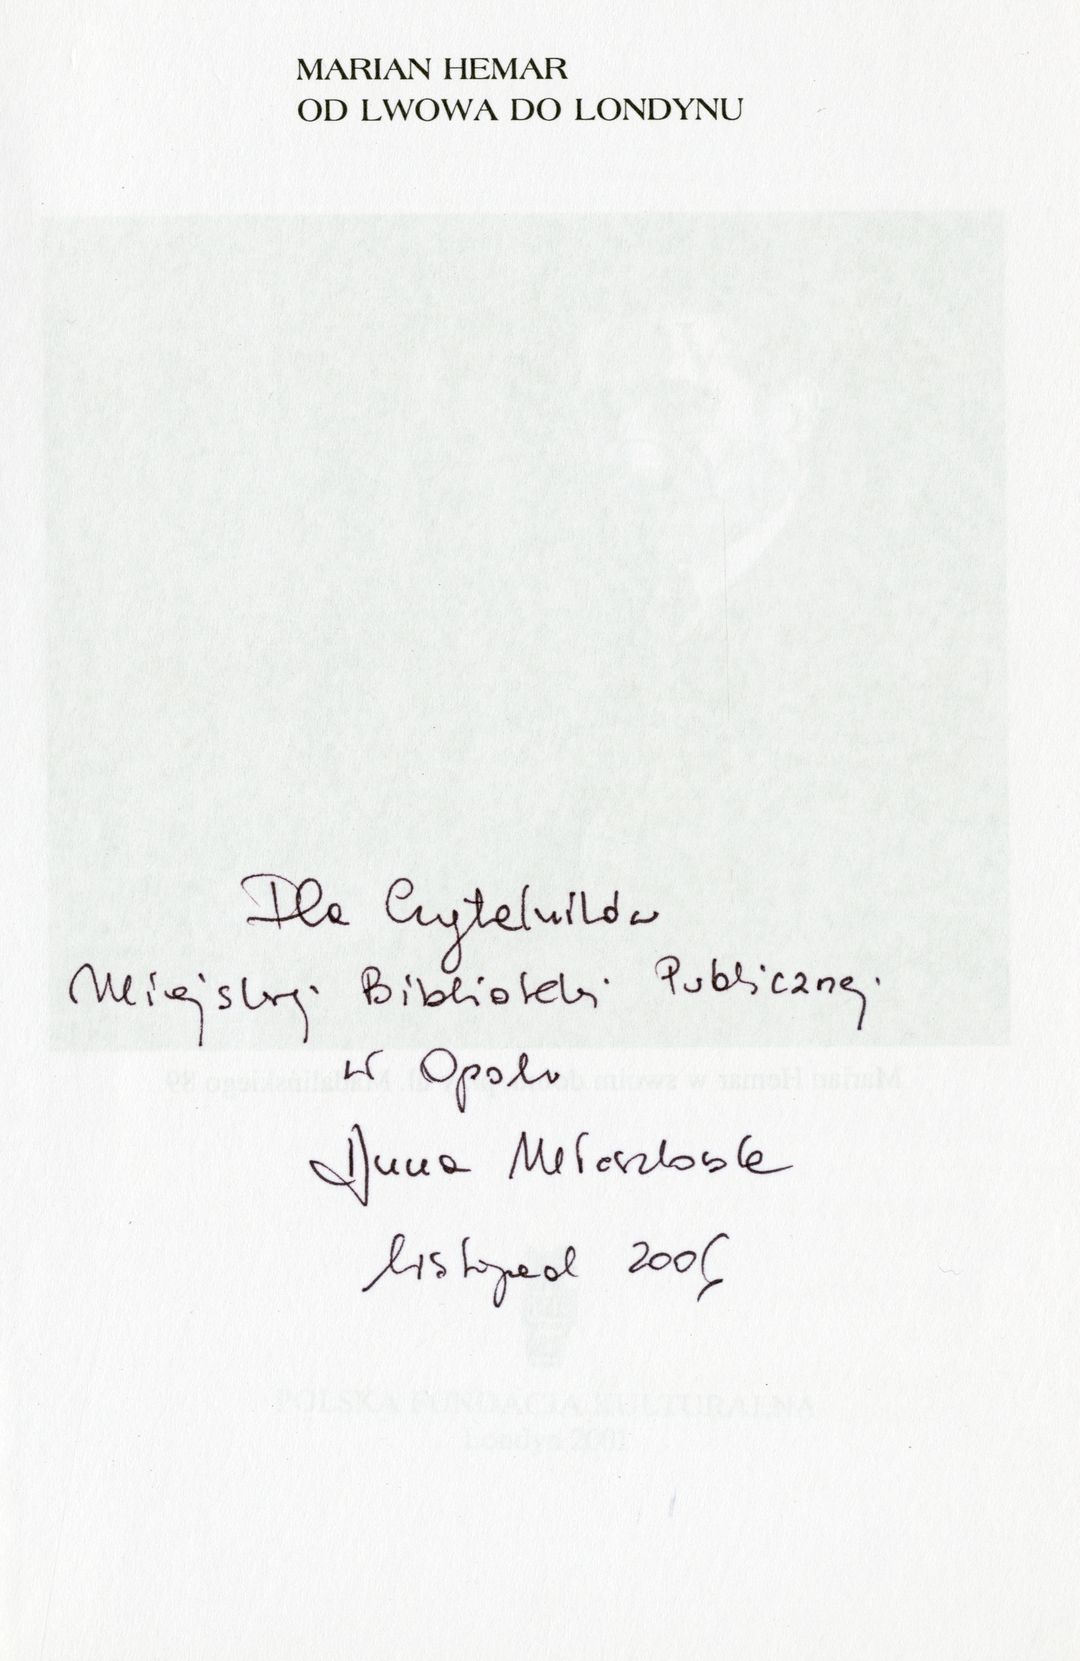 MARIAN HEMAR
OD LWOWA DO LONDYNU
Dla Czytelników
Miejskiej Biblioteki Publicznej
w Opolu
Anna Mieszkowska
listopad 2005
POLSKA FUNDACJA KULTURALNA
Londyn 2001